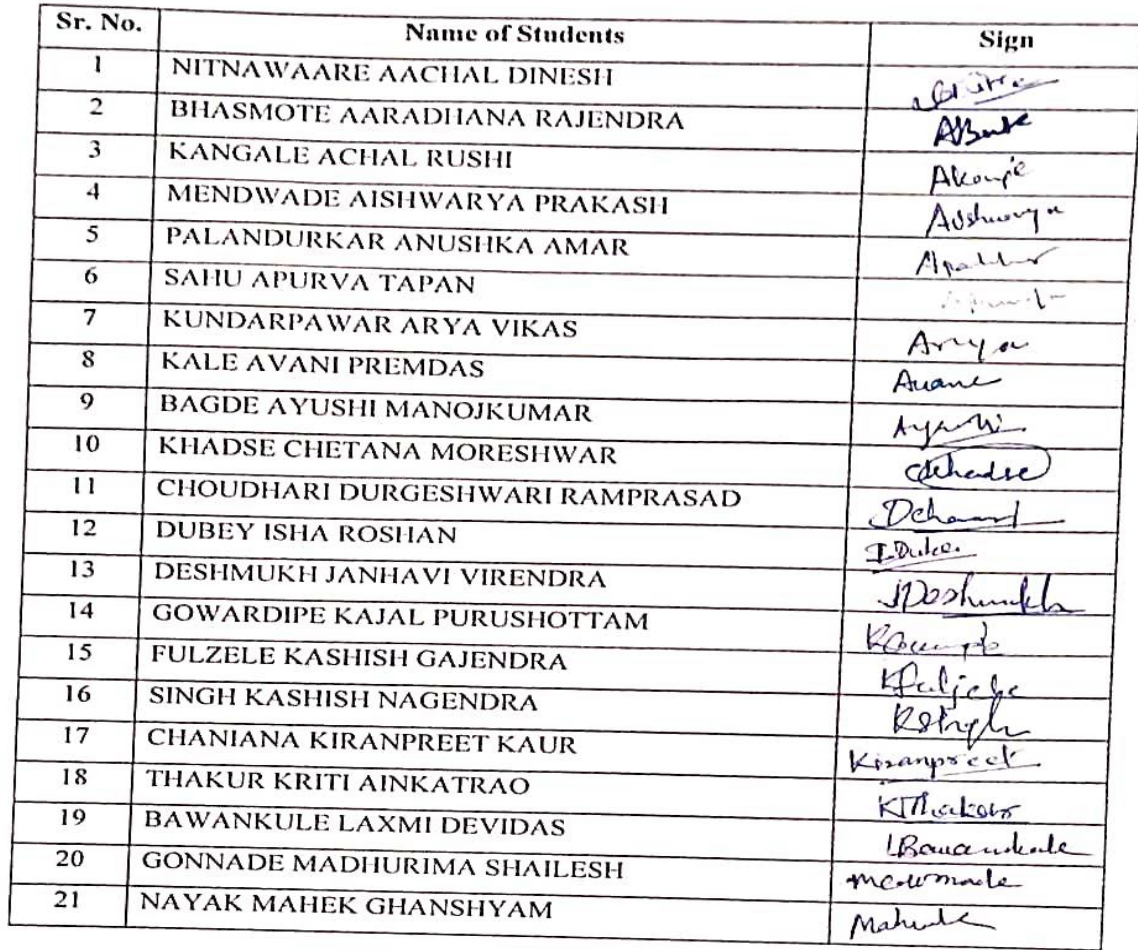 Sr. No. Name of Students Sign
1 NITNAWAARE AACHAL DINESH
2 BHASMOTE AARADHANA RAJENDRA
3 KANGALE ACHAL RUSHI
4 MENDWADE AISHWARYA PRAKASH Aishwarya
5 PALANDURKAR ANUSHKA AMAR
6 SAHU APURVA TAPAN
7 KUNDARPAWAR ARYA VIKAS Arya
8 KALE AVANI PREMDAS Avani
9 BAGDE AYUSHI MANOJKUMAR Ayushi
10 KHADSE CHETANA MORESHWAR CKhadse
11 CHOUDHARI DURGESHWARI RAMPRASAD
12 DUBEY ISHA ROSHAN
13 DESHMUKH JANHAVI VIRENDRA JDeshmukh
14 GOWARDIPE KAJAL PURUSHOTTAM
15 FULZELE KASHISH GAJENDRA
16 SINGH KASHISH NAGENDRA KSingh
17 CHANIANA KIRANPREET KAUR Kiranpreet
18 THAKUR KRITI AINKATRAO KThakur
19 BAWANKULE LAXMI DEVIDAS LBawankule
20 GONNADE MADHURIMA SHAILESH
21 NAYAK MAHEK GHANSHYAM